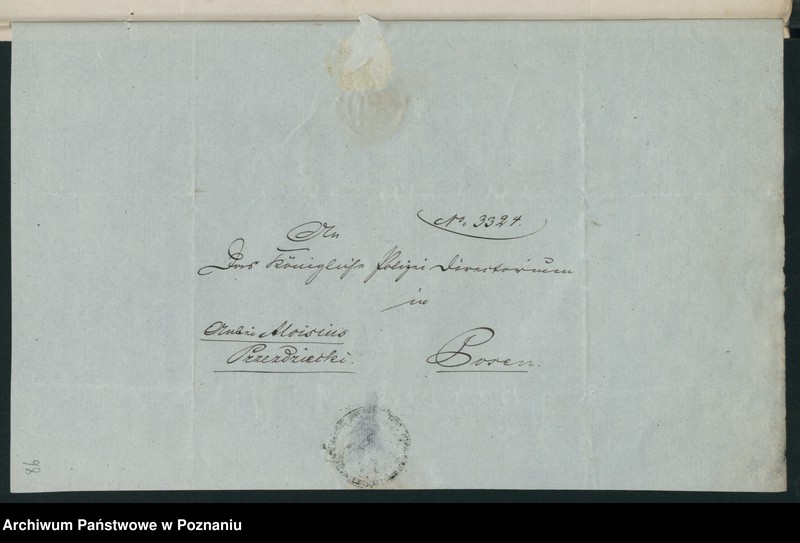 No. 3324.
An
Das Königliche Polizei Directorium
in
Anbei Aloisius
Przezdziecki.
Posen.
86
Archiwum Państwowe w Poznaniu